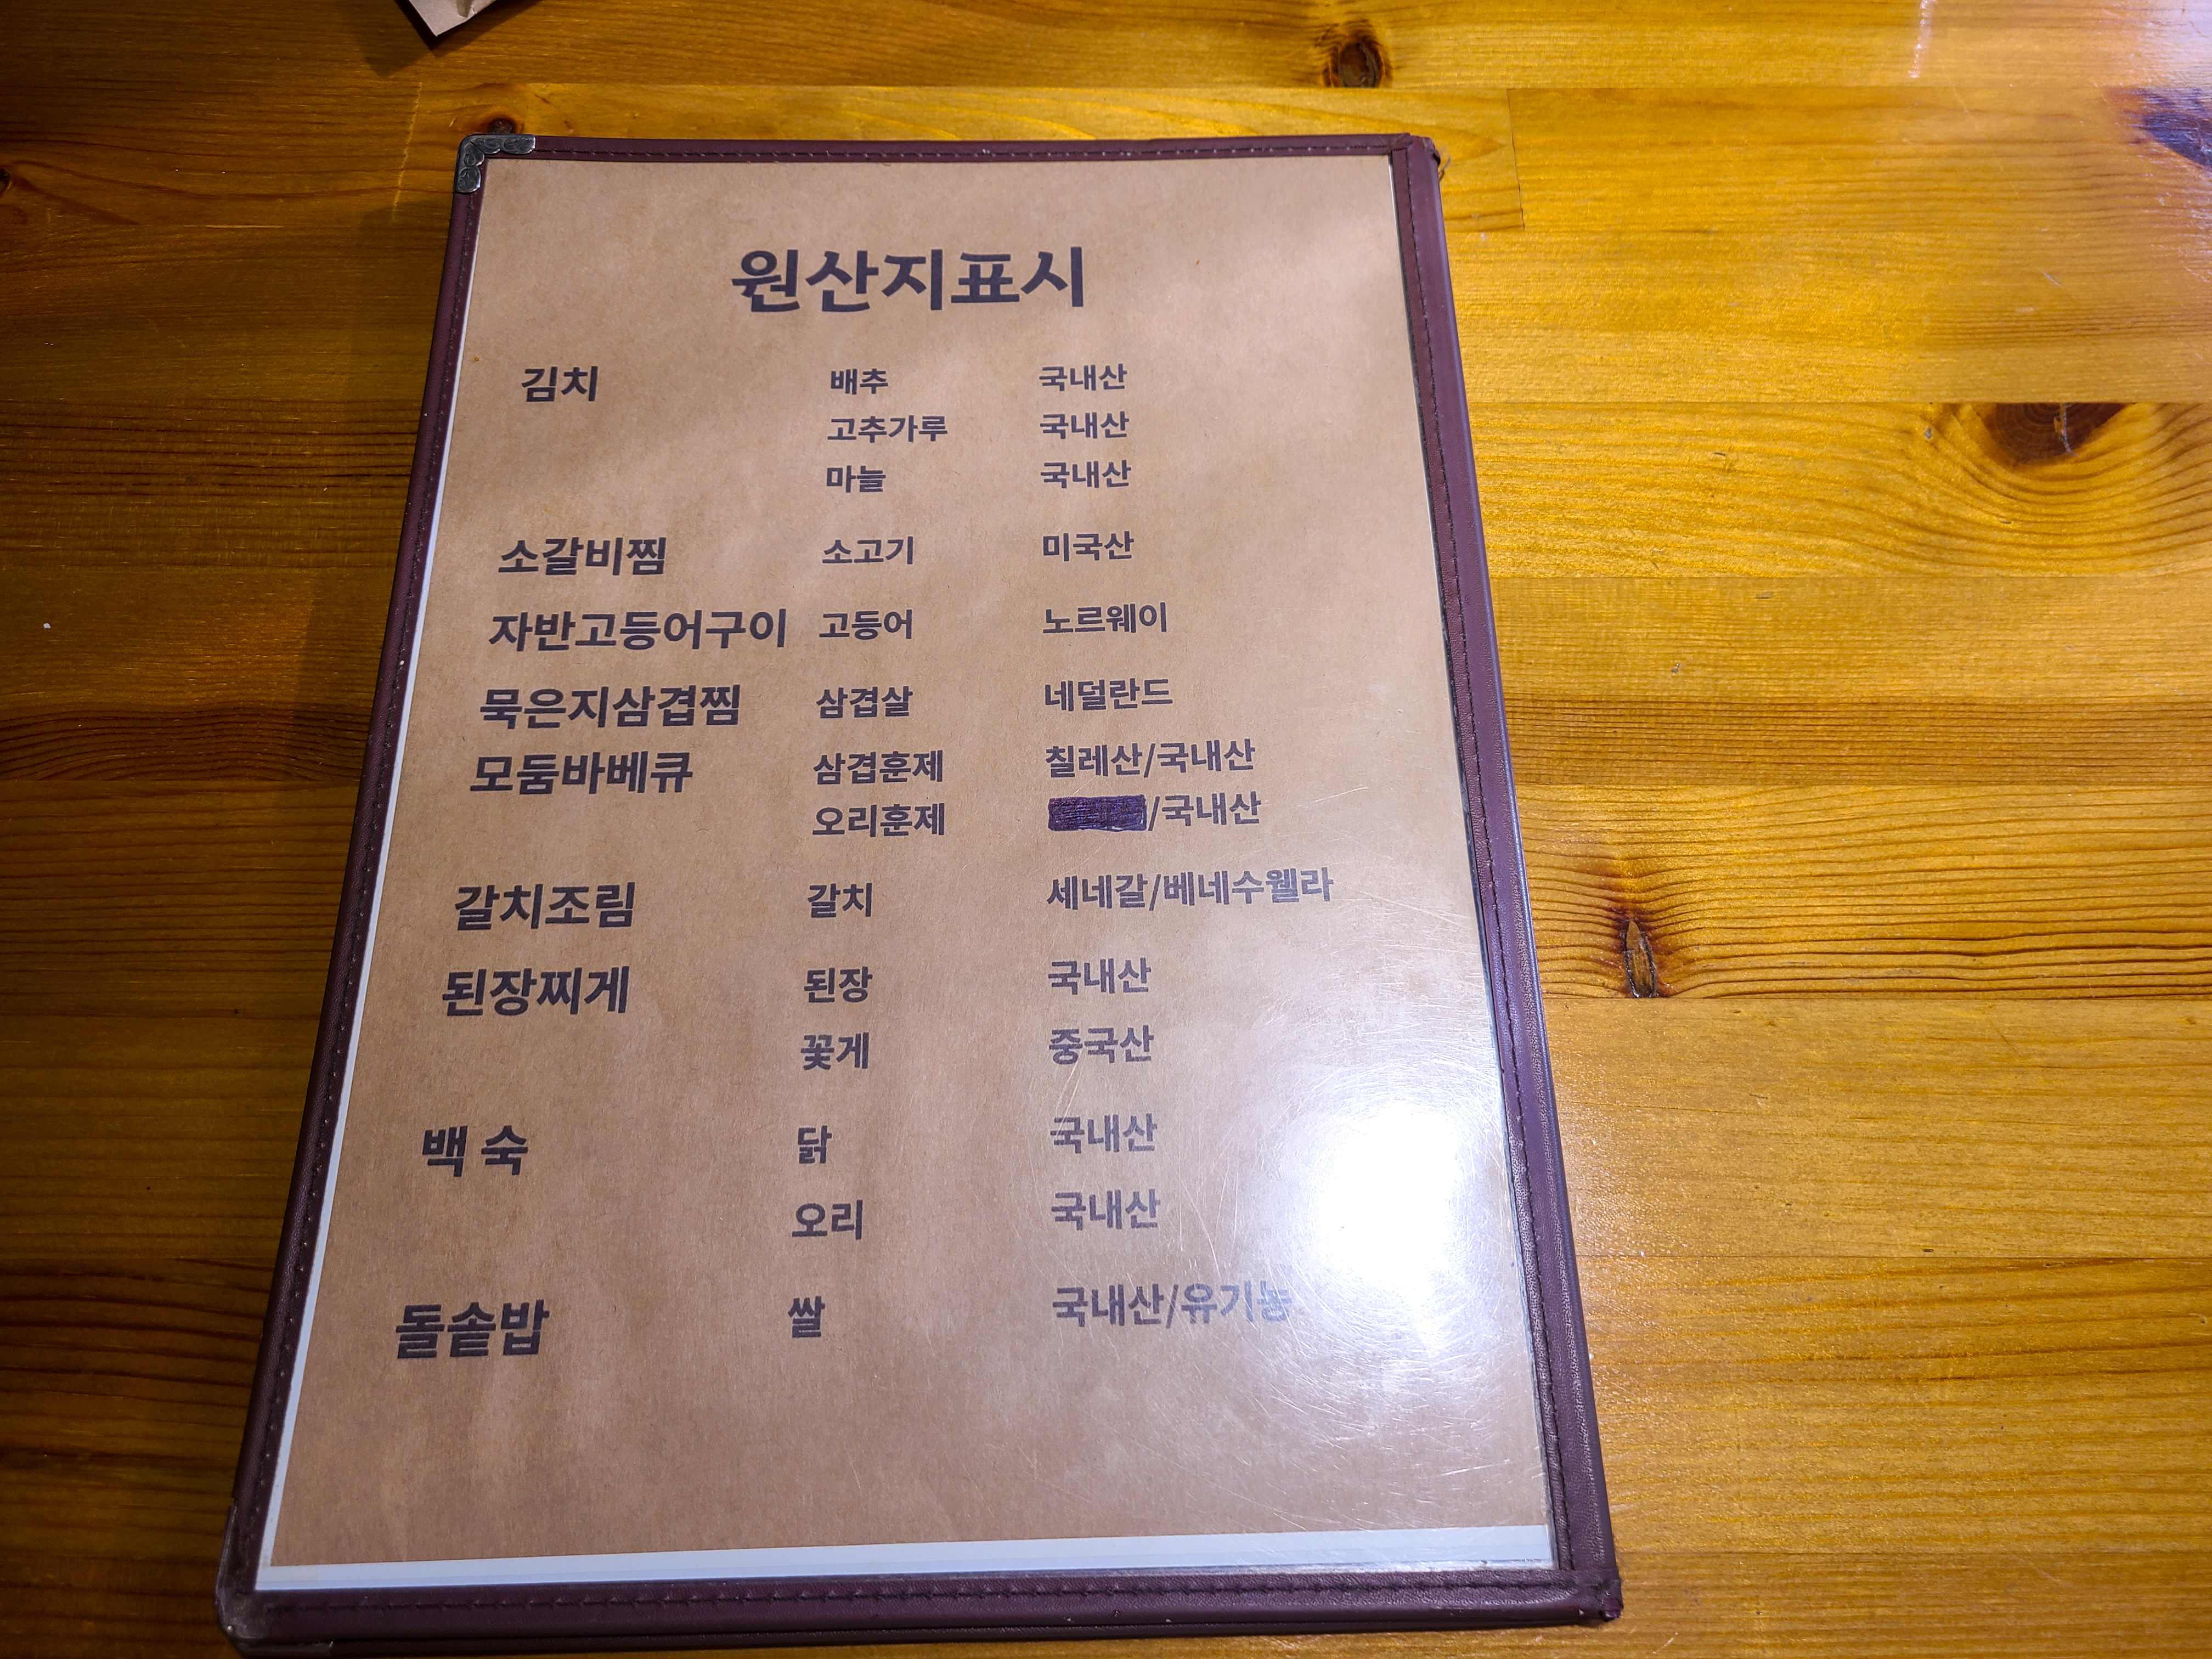 원산지표시
김치 배추 국내산
고추가루 국내산
마늘 국내산
소갈비찜 소고기 미국산
자반고등어구이 고등어 노르웨이
묵은지삼겹찜 삼겹살 네덜란드
모둠바베큐 삼겹훈제 칠레산/국내산
오리훈제 /국내산
갈치조림 갈치 세네갈/베네수웰라
된장찌게 된장 국내산
꽃게 중국산
백 숙 닭 국내산
오리 국내산
돌솥밥 쌀 국내산/유기농